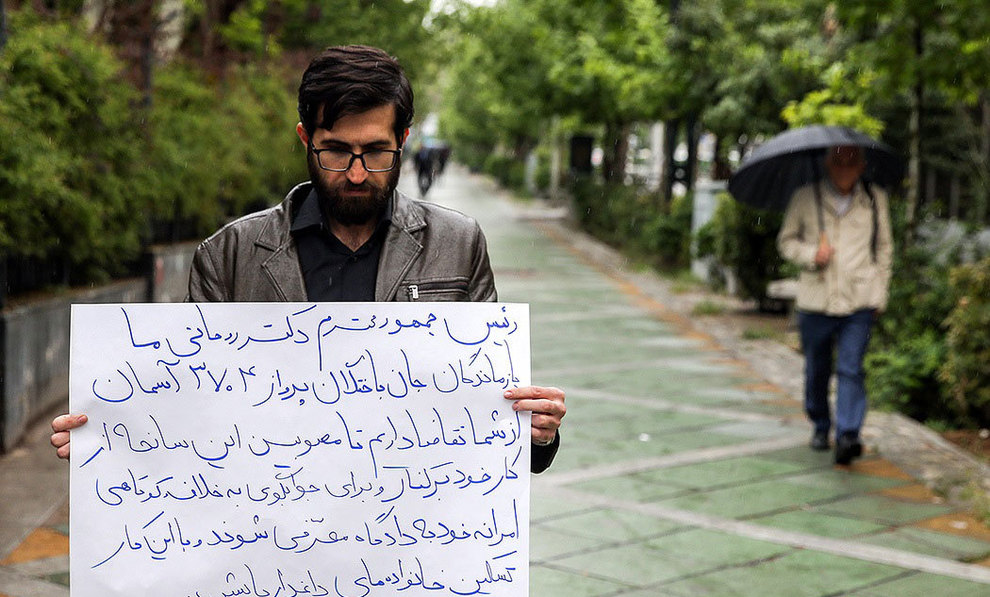 رئیس جمهور محترم دکتر روحانی ما
بازماندگان جان باختگان پرواز ۳۷۰۴ آسمان
از شما تقاضا داریم تا مصوبین این سانحه از
کار خود برکنار و برای جوابگوی به خلاف کوتاهی
خود به دادگاه معرفی شوند و با این کار
تسکین خانواده های داغدار باشی